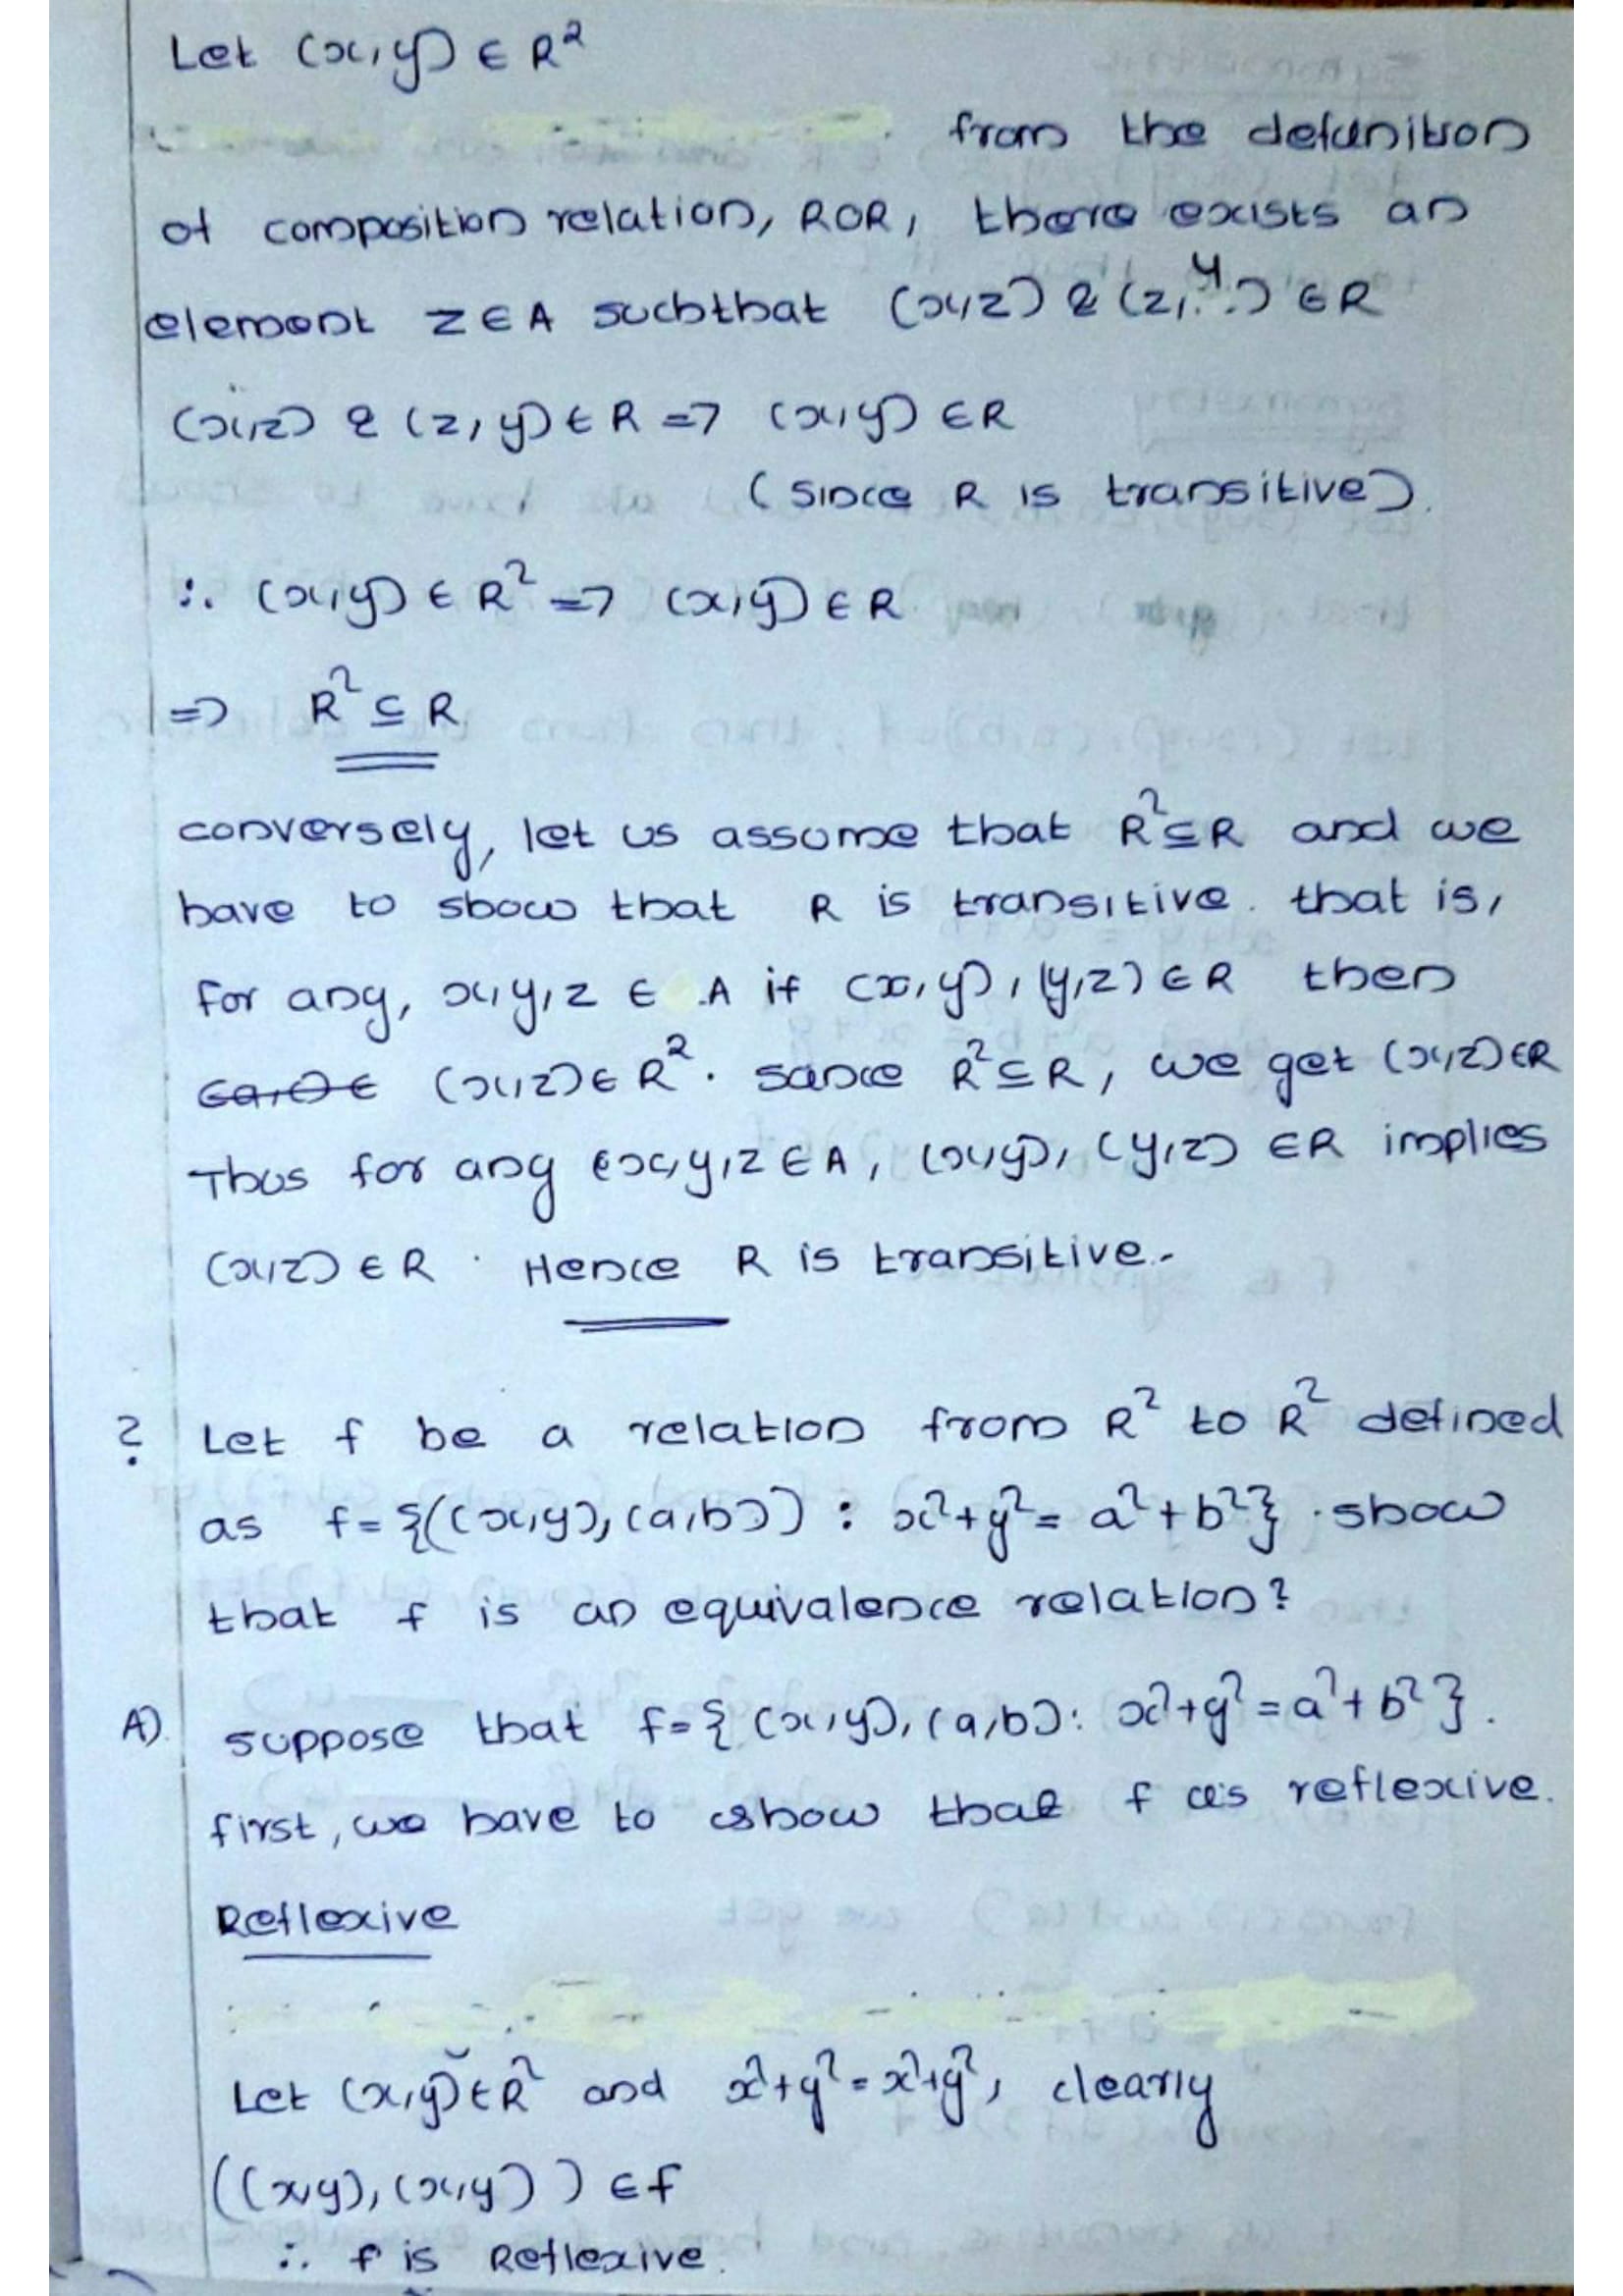 Let (x,y) ∈ R²
from the definition
of composition relation, ROR, there exists an
element z ∈ A such that (x,z) & (z,y) ∈ R
(x,z) & (z,y) ∈ R => (x,y) ∈ R
(since R is transitive).
∴ (x,y) ∈ R² => (x,y) ∈ R
=> R² ⊆ R
conversely, let us assume that R² ⊆ R and we
have to show that R is transitive. that is,
for any, x,y,z ∈ A if (x,y), (y,z) ∈ R then
(x,z) ∈ R². since R² ⊆ R, we get (x,z) ∈ R
Thus for any (x,y,z ∈ A, (x,y), (y,z) ∈ R implies
(x,z) ∈ R. Hence R is transitive.
? Let f be a relation from R² to R² defined
as f = {((x,y), (a,b)) : x²+y² = a²+b²}. show
that f is an equivalence relation?
A). suppose that f = { (x,y), (a,b): x²+y² = a²+b² }.
first, we have to show that f is reflexive.
Reflexive
Let (x,y) ∈ R² and x²+y² = x²+y², clearly
((x,y), (x,y)) ∈ f
∴ f is Reflexive.